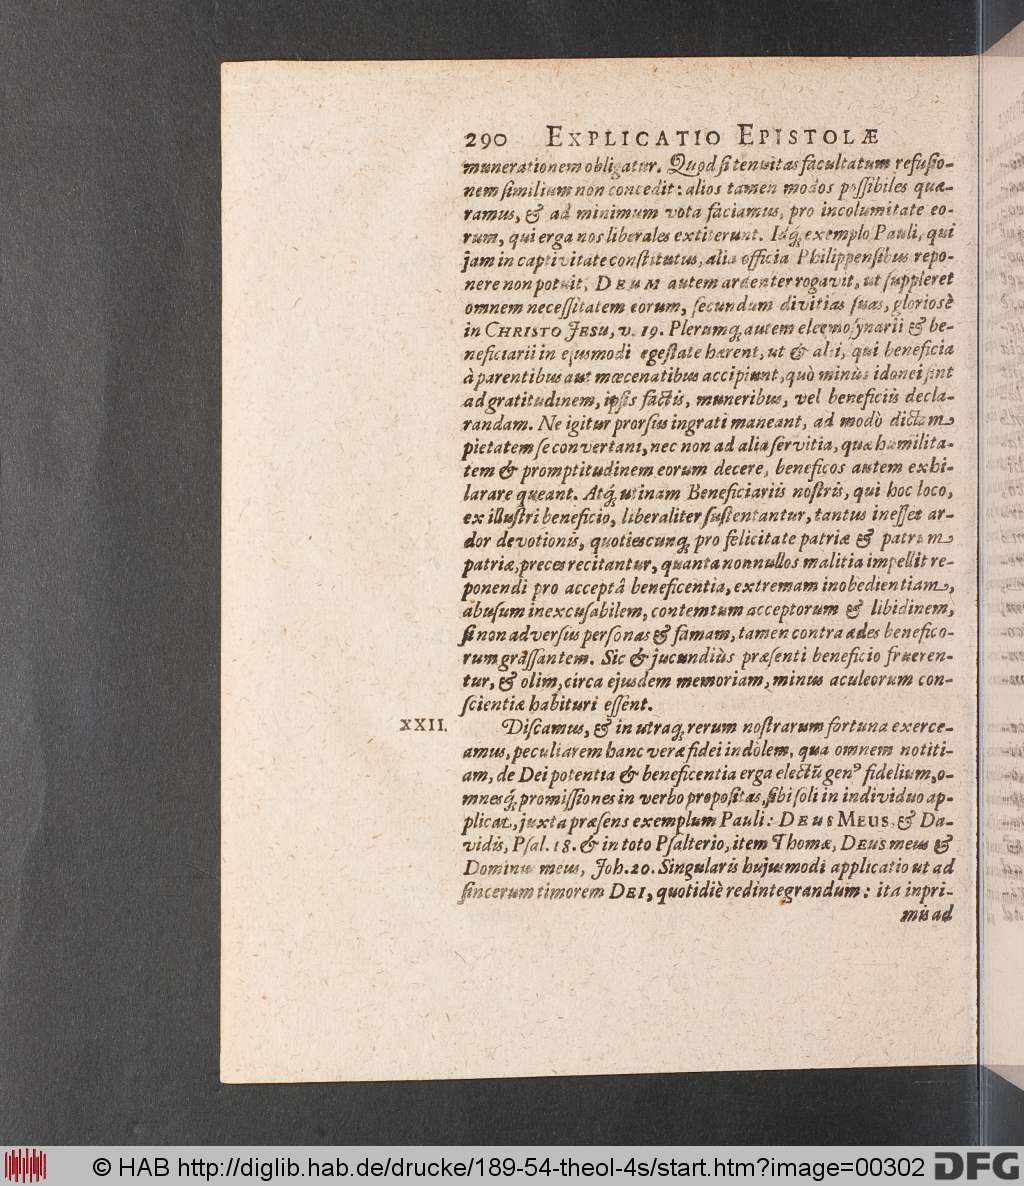 290 EXPLICATIO EPISTOLÆ
munerationem obligatur. Quod si tenuitas facultatum refusio-
nem similium non concedit: alios tamen modos possibiles quæ-
ramus, & ad minimum vota faciamus, pro incolumitate eo-
rum, qui erga nos liberales extiterunt. Idq́; exemplo Pauli, qui
jam in captivitate constitutus, alia officia Philippensibus repo-
nere non potuit, DEUM autem ardenter rogavit, ut suppleret
omnem necessitatem eorum, secundum divitias suas, gloriosè
in CHRISTO JESU, v. 19. Plerumq; autem eleemosynarii & be-
neficiarii in ejusmodi egestate hærent, ut & alii, qui beneficia
à parentibus aut mœcenatibus accipiunt, quò minùs idonei sint
ad gratitudinem, ipsis factis, muneribus, vel beneficiis decla-
randam. Ne igitur prorsus ingrati maneant, ad modò dictam
pietatem se convertant, nec non ad alia servitia, quæ humilita-
tem & promptitudinem eorum decere, beneficos autem exhi-
larare queant. Atq́; utinam Beneficiariis nostris, qui hoc loco,
ex illustri beneficio, liberaliter sustentantur, tantus inesset ar-
dor devotionis, quotiescunq; pro felicitate patriæ & patrum
patriæ, preces recitantur, quanta nonnullos malitia impellit re-
ponendi pro acceptâ beneficentia, extremam inobedientiam,
abusum inexcusabilem, contemtum acceptorum & libidinem,
si non adversùs personas & famam, tamen contra ædes benefico-
rum grassantem. Sic & jucundiùs præsenti beneficio frueren-
tur, & olim, circa ejusdem memoriam, minus aculeorum con-
scientiæ habituri essent.
XXII. Discamus, & in utraq; rerum nostrarum fortuna exerce-
amus, peculiarem hanc veræ fidei indolem, qua omnem notiti-
am, de Dei potentia & beneficentia erga electũ genꝰ fidelium, o-
mnesq́; promissiones in verbo propositas, sibi soli in individuo ap-
plicat, juxta præsens exemplum Pauli: DEUS MEUS, & Da-
vidis, Psal. 18. & in toto Psalterio, item Thomæ, DEUS meus &
Dominus meus, Joh. 20. Singularis hujusmodi applicatio ut ad
sincerum timorem DEI, quotidiè redintegrandum: ita inpri-
mis ad
© HAB http://diglib.hab.de/drucke/189-54-theol-4s/start.htm?image=00302 DFG